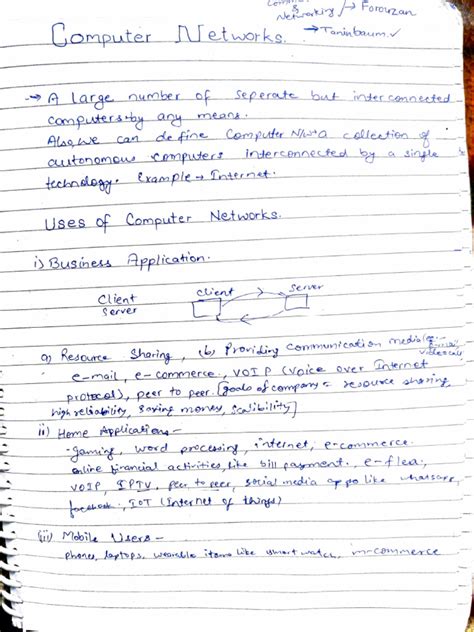 & Networking → Forouzan
→ Taninbaum ✓
Computer Networks.
→ A large number of seperate but interconnected
computers by any means.
Also, we can define Computer N/w a collection of
autonomous computers interconnected by a single
technology. Example → Internet.
Uses of Computer Networks.
i) Business Application.
Client
Server
client
server
a) Resource Sharing, (b) Providing Communication media
e-mail, e-commerce, VOIP (Voice over Internet
protocol), peer to peer. [Goals of company = resource sharing,
high reliability, saving money,
ii) Home Applications -
- Gaming, word processing, internet, e-commerce.
online financial activities, like bill payment, e-flea,
VOIP, IPTV, peer to peer, social media apps like whatsapp,
facebook, IOT (Internet of things)
(iii) Mobile Users -
phones, laptops, wearable items like smart watch, m-commerce